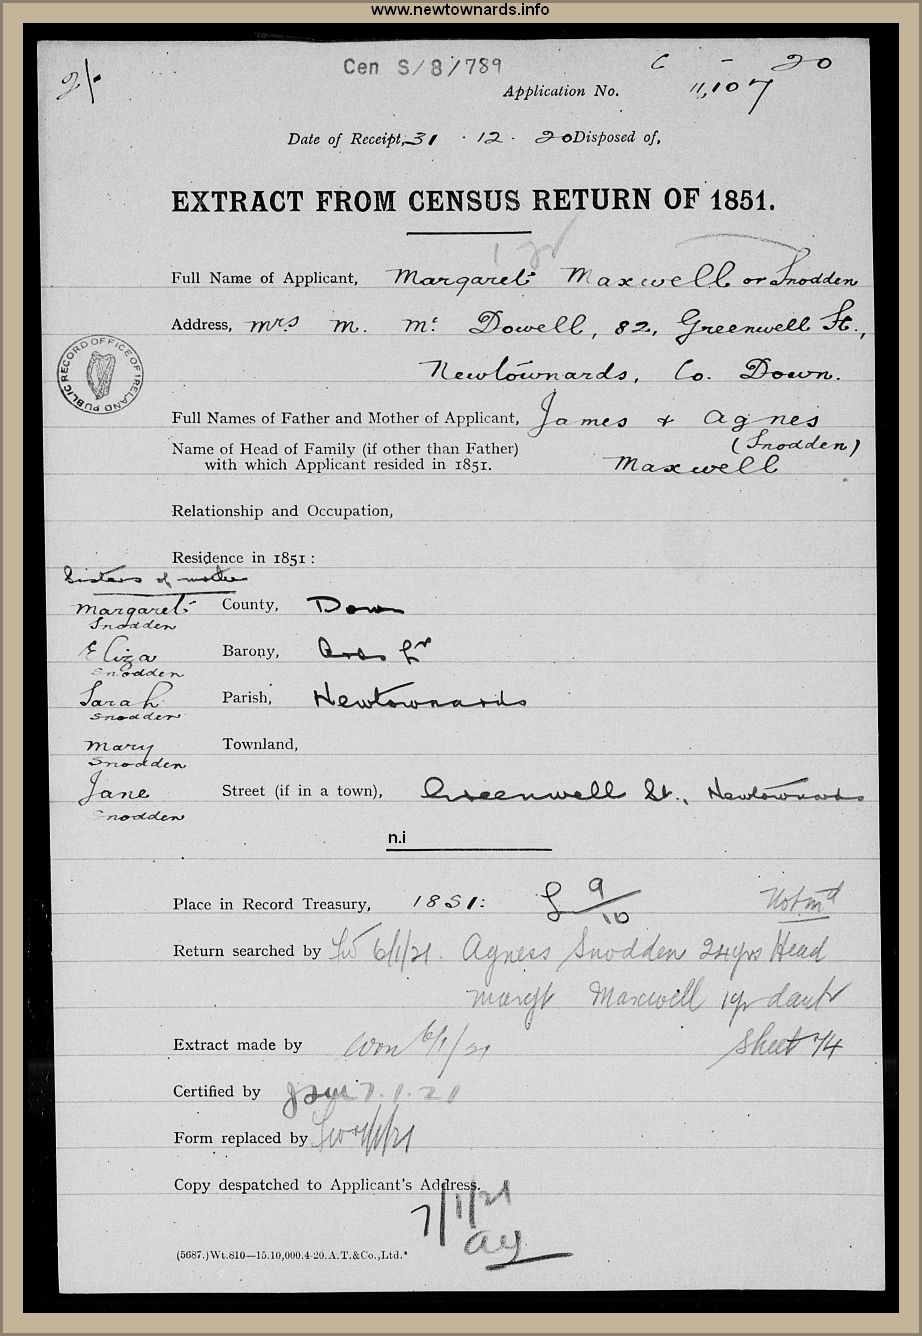 www.newtownards.info
2/-
Cen S/8/789
C - 20
Application No. 11,107
Date of Receipt, 31 . 12 . 20 Disposed of,
EXTRACT FROM CENSUS RETURN OF 1851.
1 yr
Full Name of Applicant, Margaret Maxwell or Snodden
Address, Mrs M. Mc Dowell, 82, Greenwell St.,
Newtownards, Co. Down.
PUBLIC RECORD OFFICE OF IRELAND
Full Names of Father and Mother of Applicant, James & Agnes
Name of Head of Family (if other than Father) (Snodden)
with which Applicant resided in 1851. Maxwell
Relationship and Occupation,
Residence in 1851 :
Sisters of mother
Margaret County, Down
Snodden
Eliza Barony, Ards Lr
Snodden
Sarah Parish, Newtownards
Snodden
Mary Townland,
Snodden
Jane Street (if in a town), Greenwell St., Newtownards
Snodden
n.i
Place in Record Treasury, 1851: 9/10 Not md
Return searched by 6/1/21. Agness Snodden 24yrs Head
Margt Maxwell 1yr daur
Extract made by 6/1/21 Sheet 74
Certified by 7.1.21
Form replaced by 7/1/21
Copy despatched to Applicant's Address.
7/1/21
(5687.)Wt.810—15.10,000.4-20.A.T.&Co.,Ltd.